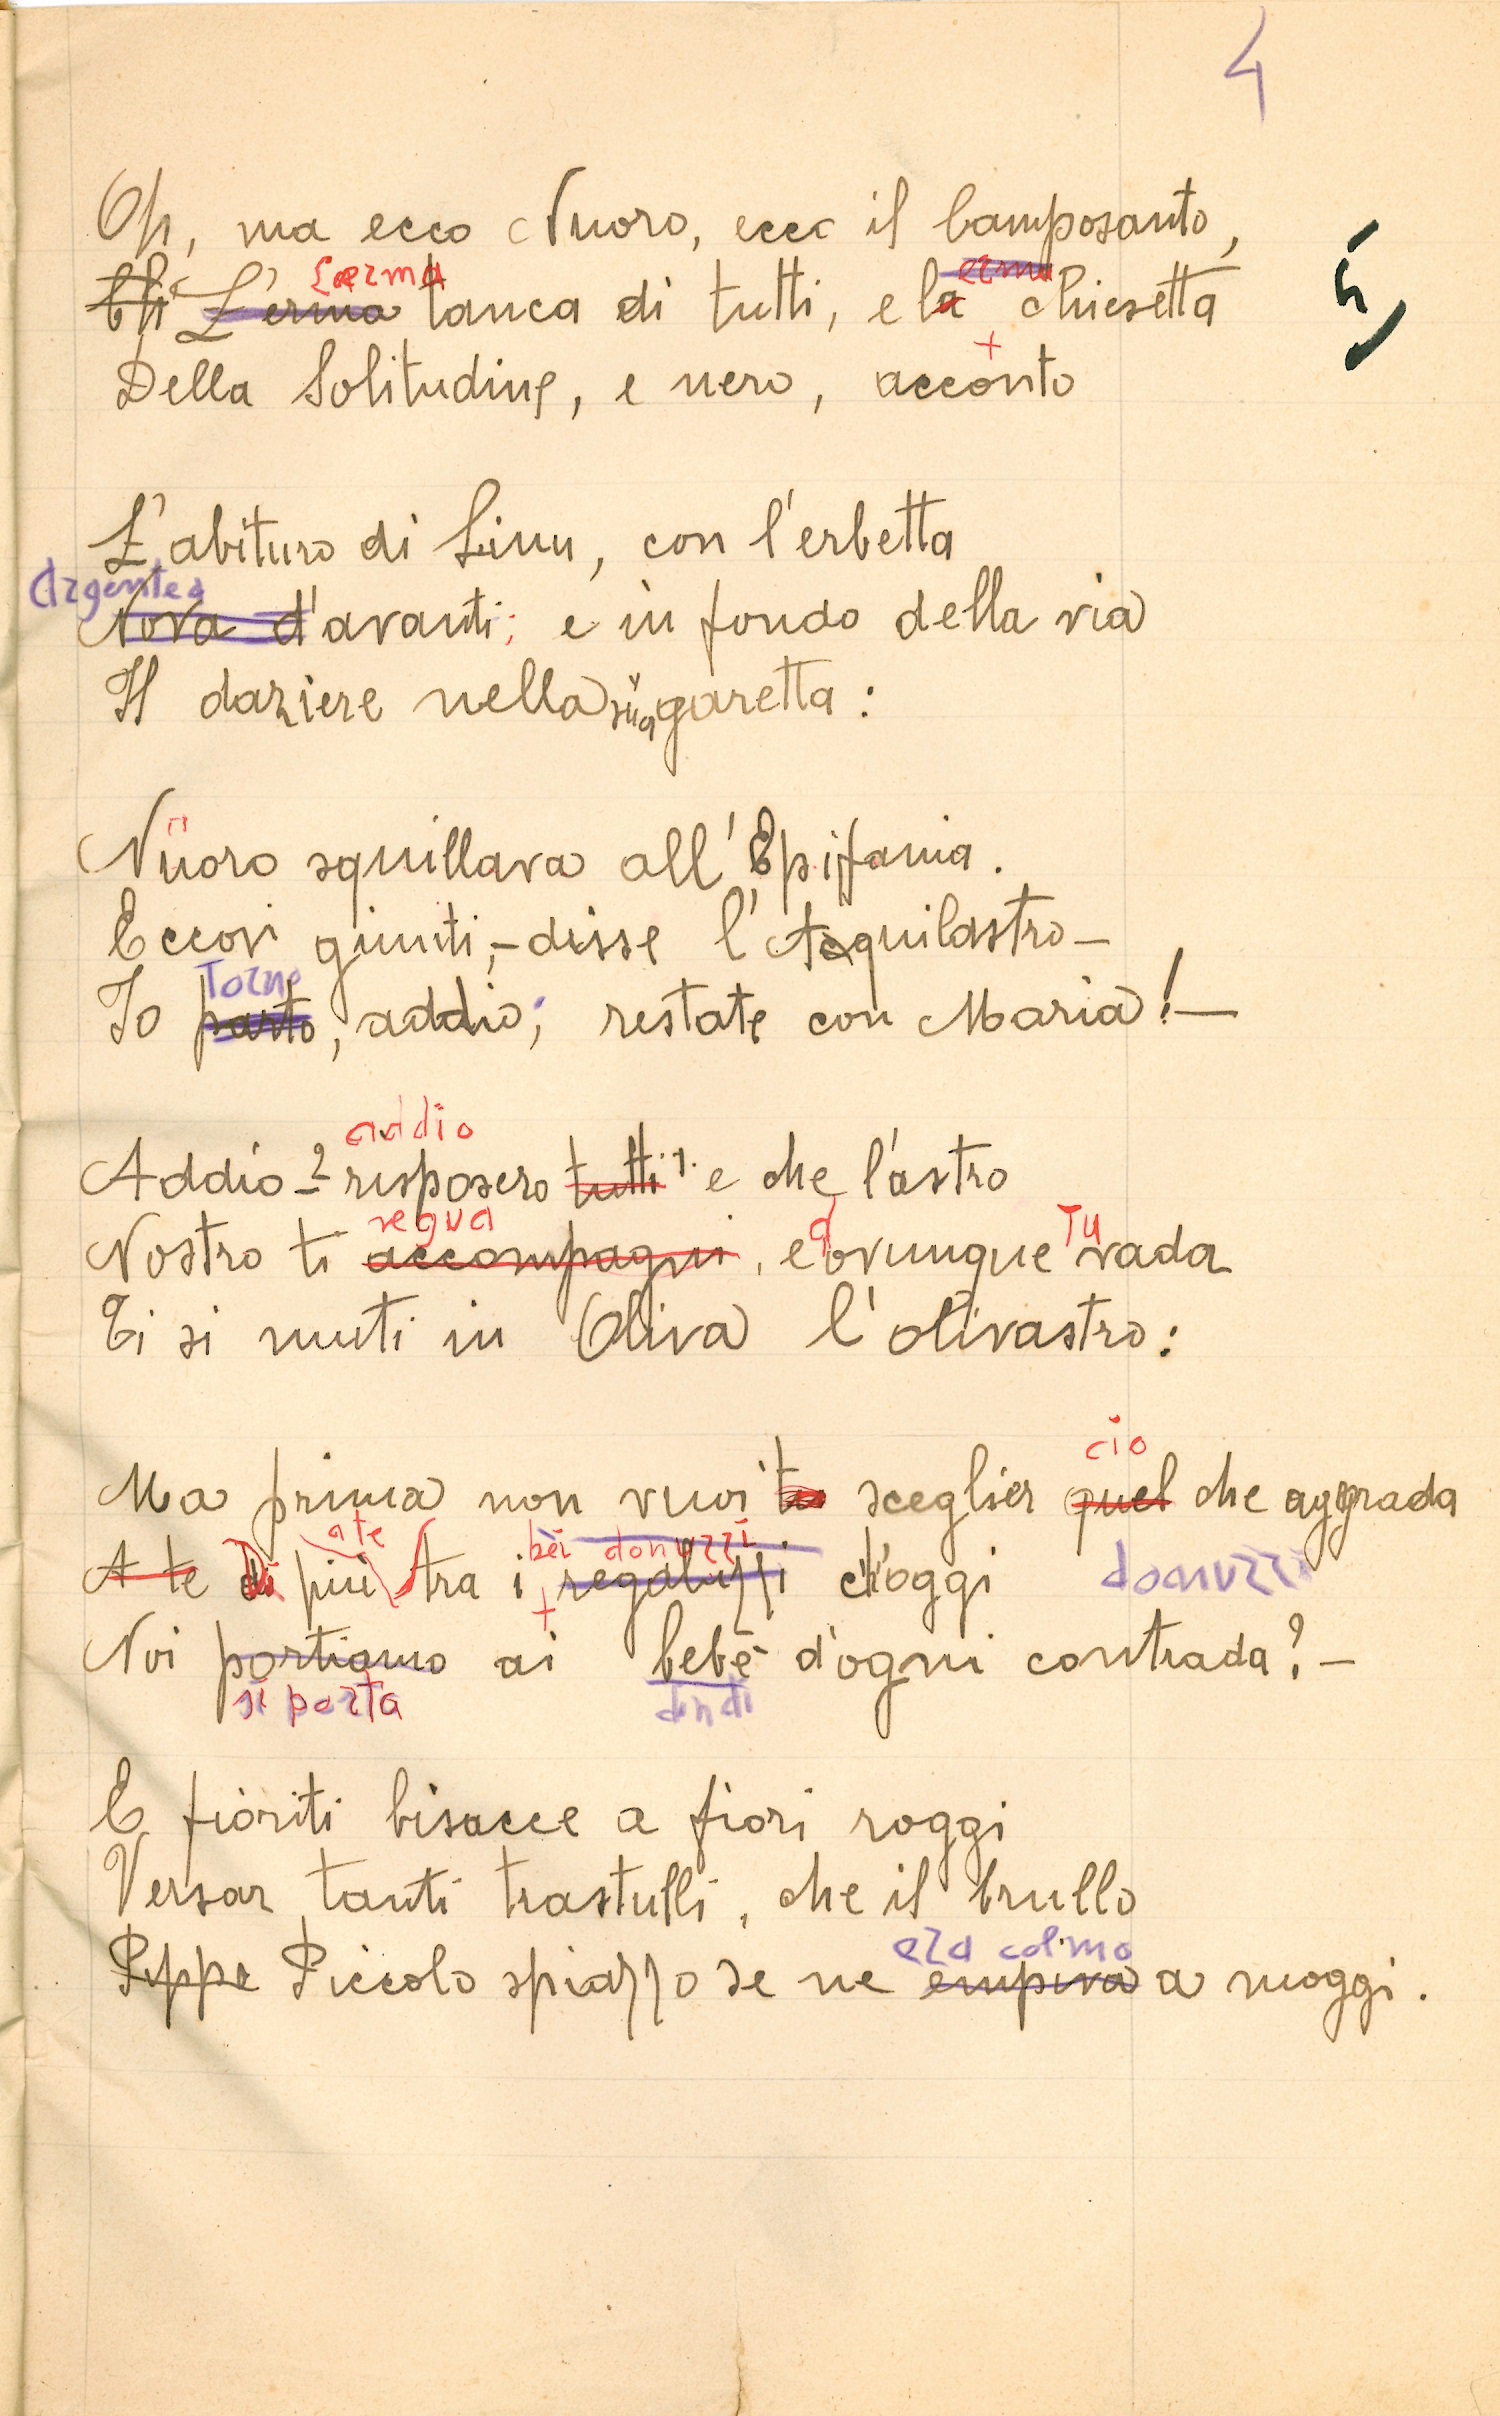 4
5
Oh, ma ecco Nuoro, ecco il Camposanto,
L'erma erma
Eh L'erma tanca di tutti, e la chiesetta
+
Della Solitudine, e nero, accanto
L'abituro di Linu, con l'erbetta
Argentea
Nova d'avanti; e in fondo della via
Il daziere nella sua garetta:
Nüoro squillava all'Epifania.
Eccovi giunti, - disse l'Aquilastro -
Torno
Io parto, addio; restate con Maria! -
addio
Addio - risposero tutti - e che l'astro
segua
Nostro ti accompagni, e ovunque Tu vada
Ti si muti in Oliva l'olivastro:
cio
Ma prima non vuoi tu sceglier quel che aggrada
a te bei donuzzi
A te di più tra i regaluzzi d'oggi donuzzi
+
Noi portiamo ai bebè d'ogni contrada? -
si porta dindi
E fioriti bisacce a fiori roggi
Versar tanti trastulli, che il brullo
era colmo
Peppe Piccolo spiazzo se ne empiva a moggi.